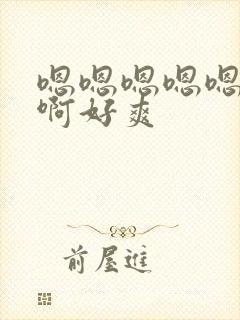 嗯嗯嗯嗯嗯
啊好爽
前屋進